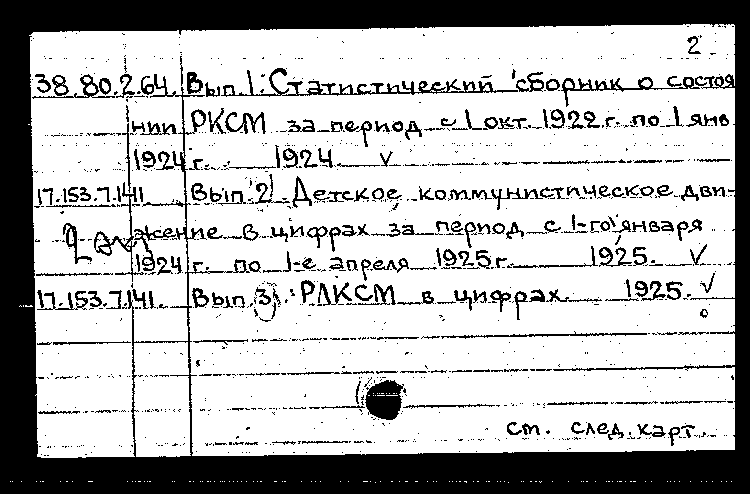 2
38.80.2.64. Вып. 1: Статистический сборник о состоя
нии РКСМ за период с 1 окт. 1922 г. по 1 янв
1924 г. 1924. v
17.153.7.141. Вып. 2. Детское коммунистическое дви-
жение в цифрах за период с 1-го января
1924 г. по 1-е апреля 1925 г. 1925. v
17.153.7.141. Вып. 3. РЛКСМ в цифрах. 1925. v
см. след. карт.